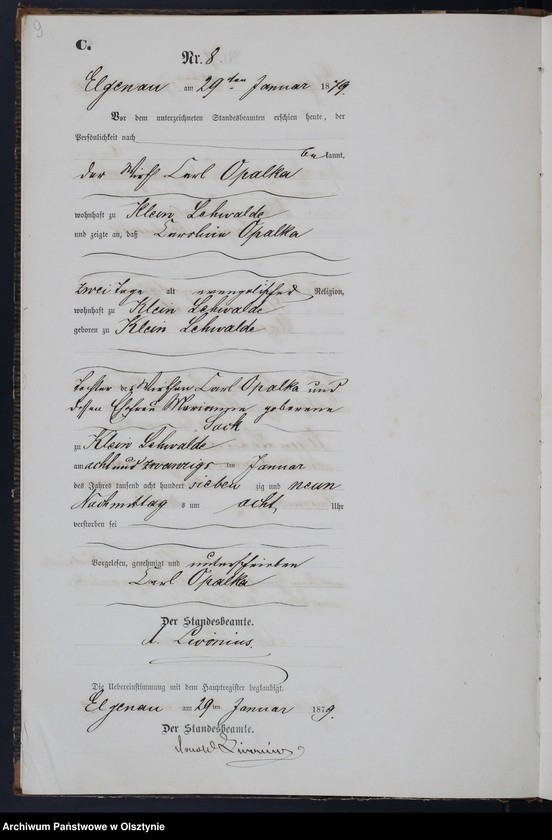 9
C.
Nr. 8.
Elgenau am 29ten Januar 1879.
Vor dem unterzeichneten Standesbeamten erschien heute, der
Persönlichkeit nach
be kannt,
der Wirth Carl Opalka
wohnhaft zu Klein Lehwalde
und zeigte an, daß Caroline Opalka
zwei Tage alt evangelischer Religion,
wohnhaft zu Klein Lehwalde
geboren zu Klein Lehwalde
Tochter des Wirthen Carl Opalka und
dessen Ehefrau Marianne geborene
Sack
zu Klein Lehwalde
am acht und zwanzigsten Januar
des Jahres tausend acht hundert sieben zig und neun
Nachmittag s um acht Uhr
verstorben sei
Vorgelesen, genehmigt und unterschrieben
Carl Opalka
Der Standesbeamte.
A. Livonius.
Die Uebereinstimmung mit dem Hauptregister beglaubigt.
Elgenau am 29ten Januar 1879.
Der Standesbeamte.
Livonius
Archiwum Państwowe w Olsztynie